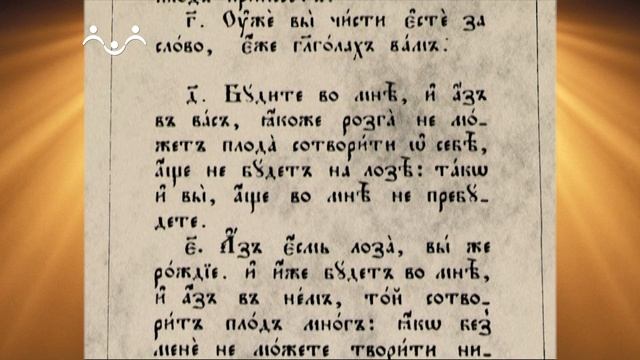 г҃. Оу҆́же вы̀ чи́сти є҆стѐ за
сло́во, є҆́же гл҃голахъ ва́мъ:
д҃. Бꙋ́дите во мнѣ̀, и҆ а҆́зъ
въ ва́съ, ꙗ҆́коже розга̀ не мо́-
жетъ плода̀ сотвори́ти ѡ҆ себѣ̀,
а҆́ще не бꙋ́детъ на лозѣ̀: та́кѡ
и҆ вы̀, а҆́ще во мнѣ̀ не пребꙋ́-
дете.
є҃. А҆́зъ є҆́смь лоза̀, вы̀ же
ро́ждїе. и҆ и҆́же бꙋ́детъ во мнѣ̀,
и҆ а҆́зъ въ не́мъ, то́й сотво-
ри́тъ пло́дъ мно́гъ: ꙗ҆́кѡ без̾
менѐ не мо́жете твори́ти ни-